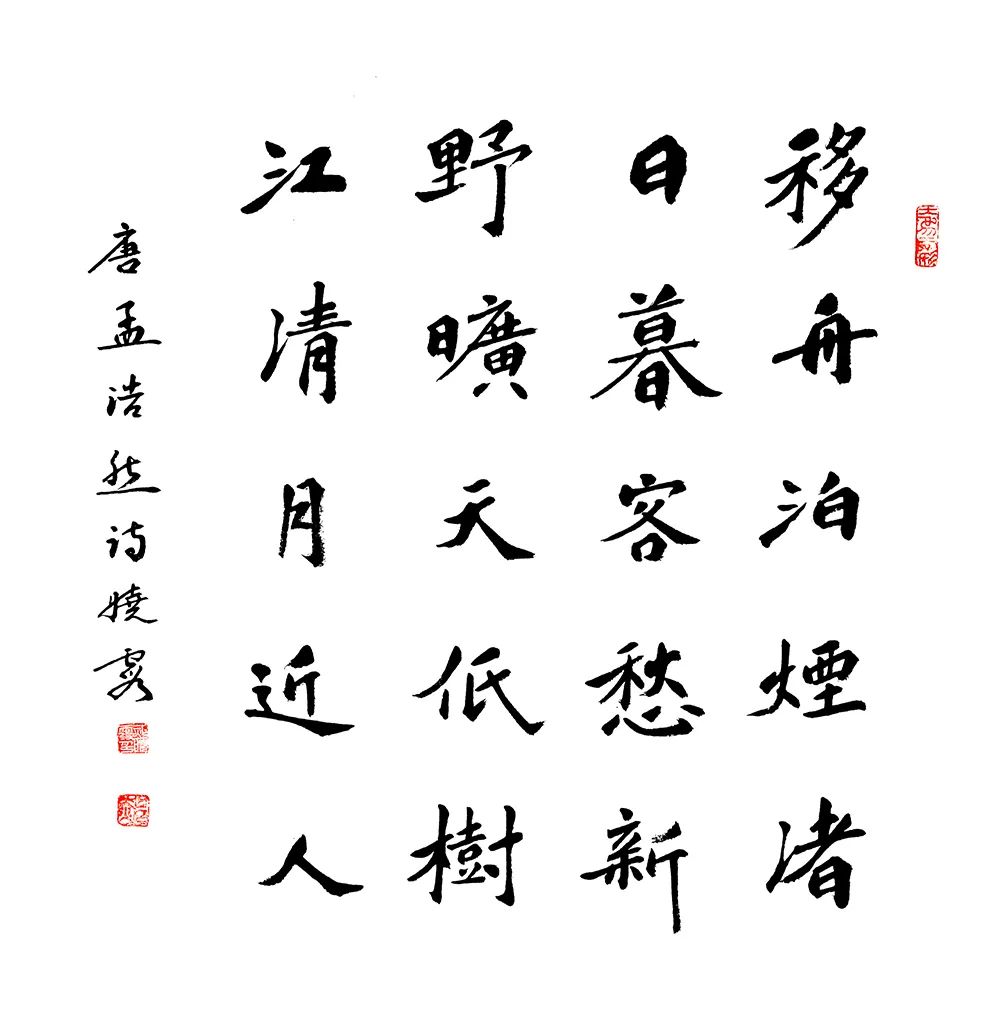 移舟泊煙渚
日暮客愁新
野曠天低樹
江清月近人
唐孟浩然诗嬈霞